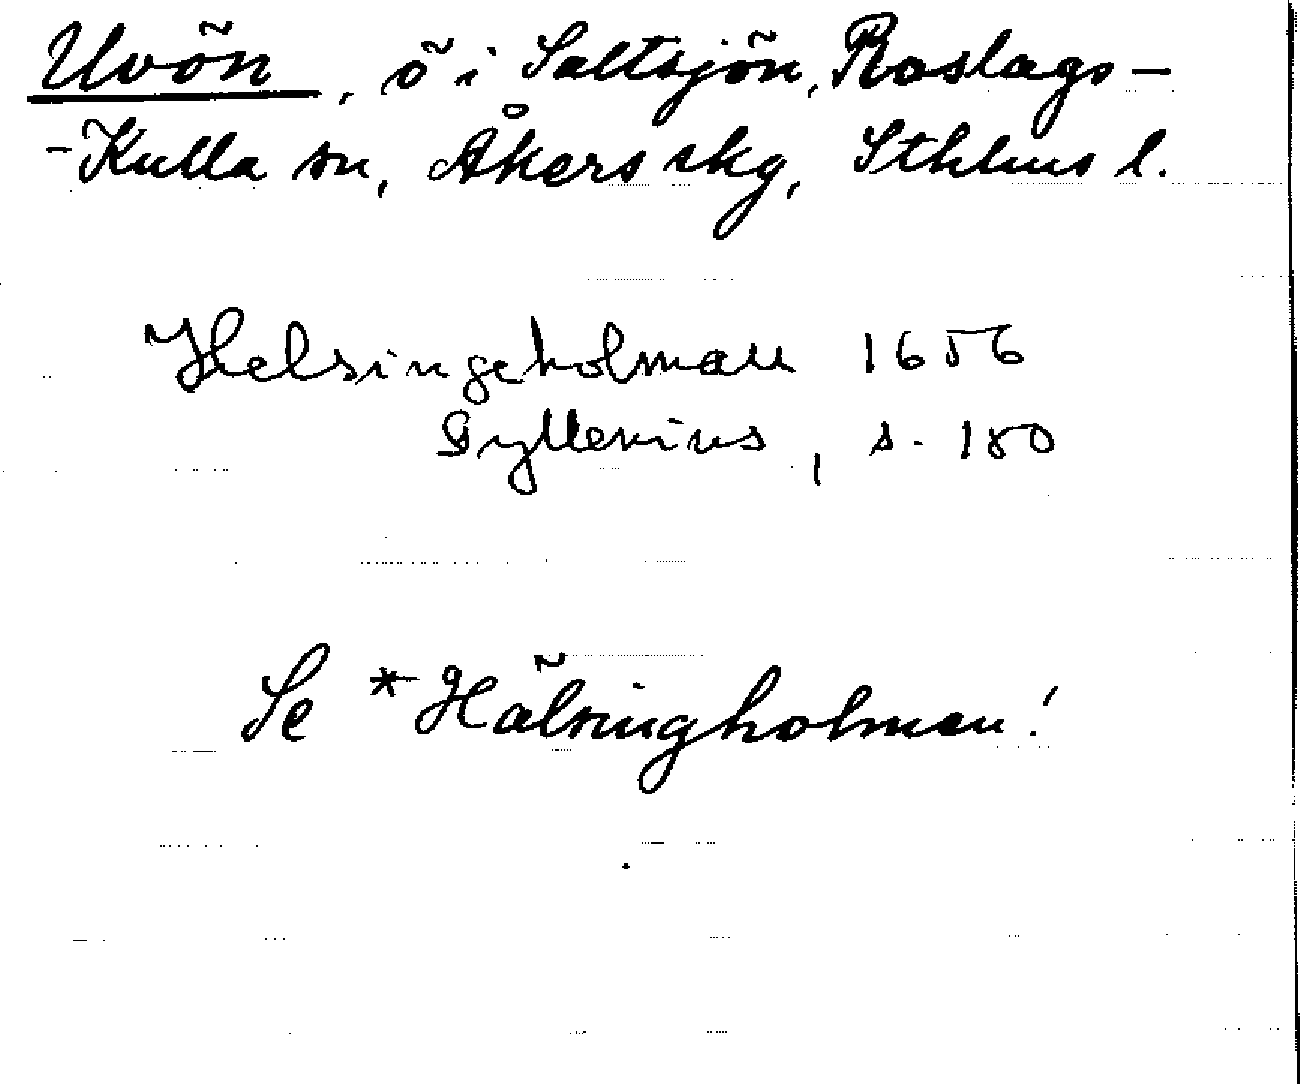 Uvön, ö i Saltsjön, Roslags-
-Kulla sn, Åkers skg, Sthlms l.
Helsingeholman 1656
Gyllenius, s. 180
Se *Hälsingholmen!